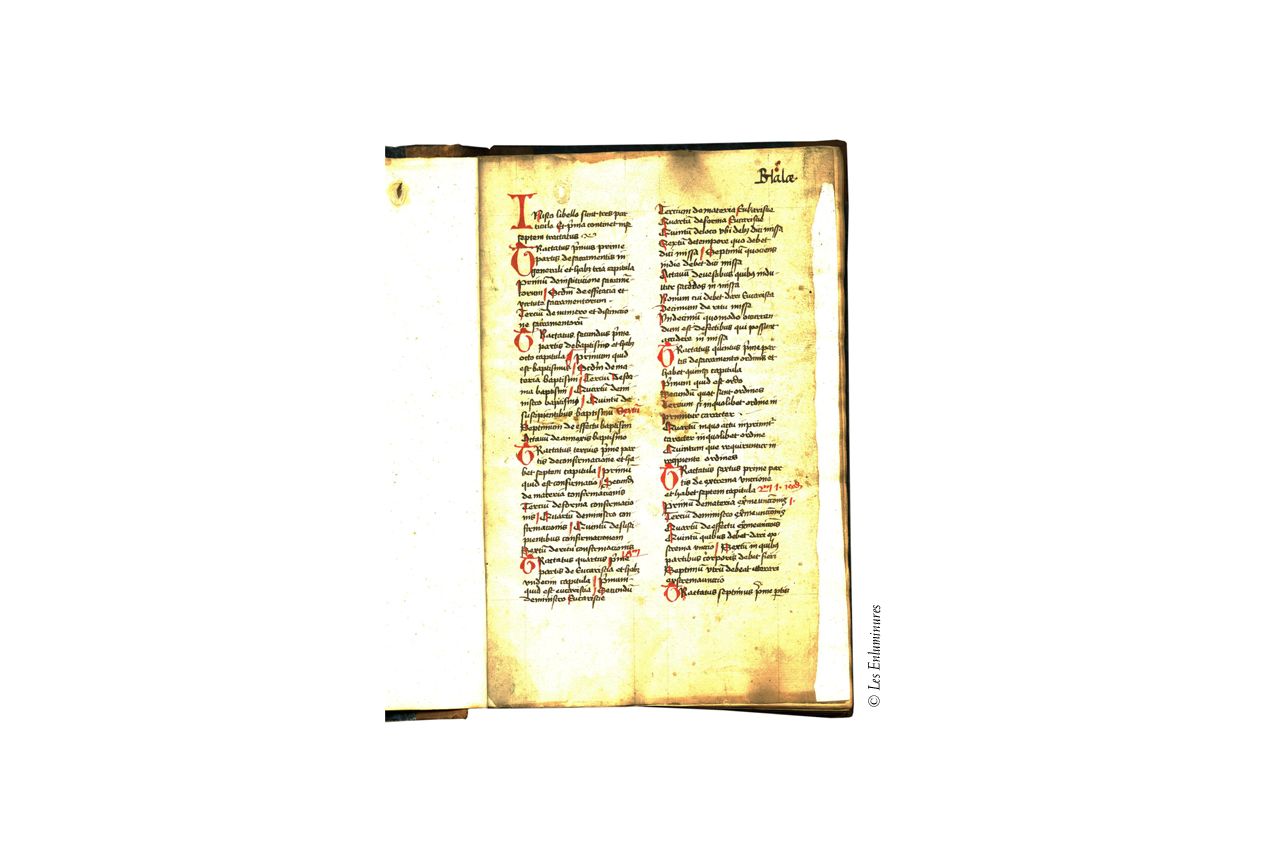 IN isto libello sunt tres par
ticule Et p̄ma continet in se
septem tractatus
TRactatus p̄mus prime
partis de sacramentis in
generali et habȝ tria capitula
primū de institutione sacamē-
torum Scdm̄ de efficatia et
virtute sacramentorum
Terciū de numero et distinctio
ne sacramentorū
TRactatus secundus p̄me
partis de baptismo et habȝ
octo capitula Primum quid
est baptismus Scdm̄ de ma-
teria baptismi Terciū de for
ma baptismi Quartū de mi
nistro baptismi Quintū de
suscipientibus baptismū Sextū
Septimum de effectu baptismi
Octauū de annexis baptismo
TRactatus tercius p̄me par
tis de confirmacione et ha
bet septem capitula primū
quid est confirmatio Secundū
de materia confirmacionis
Terciū de forma confirmacio
nis Quartū de ministro con
firmacionis Quintū de susci
pientibus confirmacionem
Sextū de ritu confirmacionis
TRactatus quartus p̄me
partis de Eucaristia et habȝ
vndecim capitula Primum
quid est eucaristia Secundū
de ministro Eucaristie
Tercium de materia Eukaristie
Quartū de forma Eucaristie
Quintū de loco vbi debȝ dici missa
Sextū de tempore quo debet
dici missa Septimū quociens
in die debet dici missa
Octauū de vestibus quibus indu
itur sacerdos in missa
Nonum cui debet dari Eucaristia
Decimum de ritu missa
Vndecimū quomodo occurren
dum est defectibus qui possunt
accidere in missa
TRactatus quintus p̄me par
tis de sacramento ordinis et
habet quinqȝ capitula
Primum quid est ordo
Secundū quot sunt ordines
Tercium si in quolibet ordine im
primitur caracter
Quartū in quo actu inprimit᷑
caracter in quolibet ordine
Quintum que requiruntur in
recipiente ordines
TRactatus sextus prime par
tis de extrema vnctione
et habet septem capitula
Primū de materia ext̄me unctionis
Terciū de ministro ext̄me unctionis
Quartū de effectu ext̄me unctionis
Quintū quibus debet dari ex-
trema vnctio Sextū in quibus
partibus corporis debet fieri
Septimū vtrū debeat iterari
extrema unctio
TRactatus septimus p̄me p̱tis
© Les Enluminures